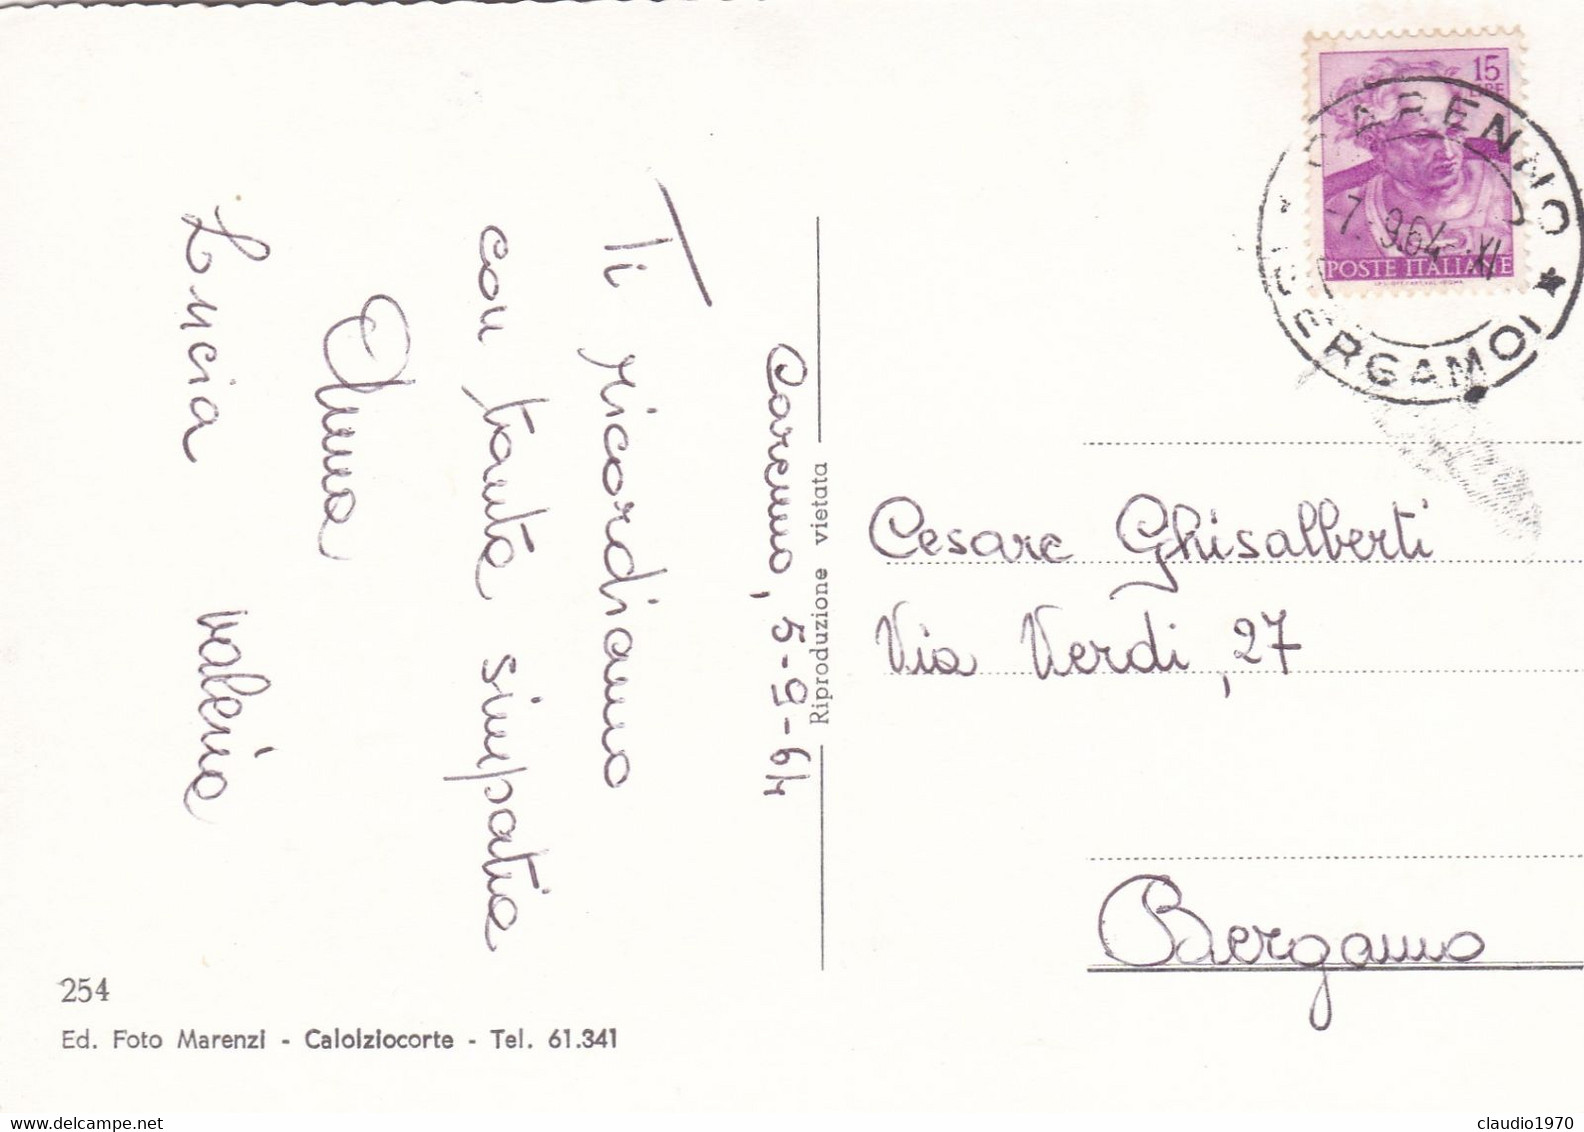 Carenno, 5-9-64
Ti ricordiamo
con tante simpatia
Anna
Lucia Valeria
254
Ed. Foto Marenzi - Calolziocorte - Tel. 61.341
Riproduzione vietata
15
LIRE
POSTE ITALIANE
CARENNO
-7.9.64-XI
(BERGAMO)
Cesare Ghisalberti
Via Verdi, 27
Bergamo
claudio1970